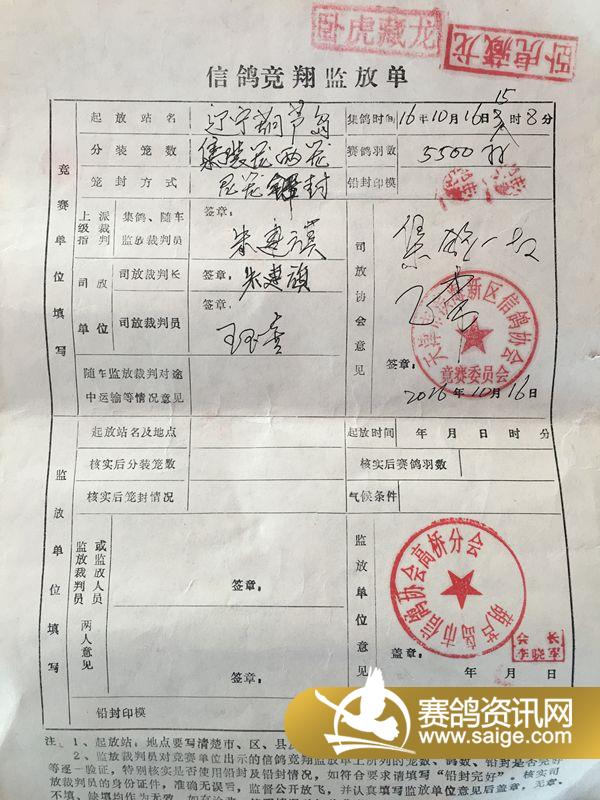 卧虎藏龙
卧虎藏龙
信鸽竞翔监放单
竞赛单位填写
起放站名 辽宁葫芦岛 集鸽时间 16年10月16日 15 8时8分
分装笼数 集装笼两笼 赛鸽羽数 5500羽
笼封方式 封 铅封印模
上级指派裁判 集鸽、随车监放裁判员 签章： 朱建旗
司放单位 司放裁判长 签章： 朱建旗
司放裁判员 签章：
随车监放裁判对途中运输等情况意见
司放协会意见
天津市滨海新区信鸽协会
竞赛委员会
签章：
2016年10月16日
监放单位填写
起放站名及地点 起放时间 年 月 日 时 分
核实后分装笼数 核实后赛鸽羽数
核实后笼封情况 气候条件
监放裁判员或监放人员两人意见 签章：
签章：
监放单位意见
葫芦岛市信鸽协会高桥分会
会长
李晓军
盖章：
年 月 日
铅封印模
注：1、起放站，地点要写清楚市、区、县
2、监放裁判员对竞赛单位出示的信鸽竞翔监放单上所列的笼数、鸽数、铅封是否完好
等逐一验证，特别核实是否使用铅封及铅封情况，如符合要求请填写“铅封完好”。核实司
放裁判员的身份证件，准确无误后，监督公开放飞，并认真填写监放单位意见后盖章，无章、
不填、缺填均作为无效
赛鸽资讯网
www.saige.com